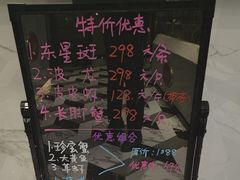 特价优惠
1.东星斑 298元/条
2.波龙 298元/只
3. 128元
4.长脚蟹 298元/只
优惠组合
1.珍宝蟹
2.大黄鱼
3.
原价:1088
优惠价: